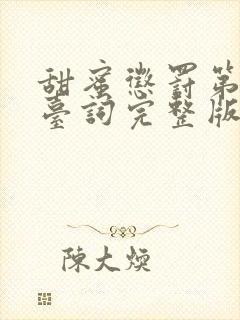 甜蜜懲罰第
臺詞完整版
陳大煐